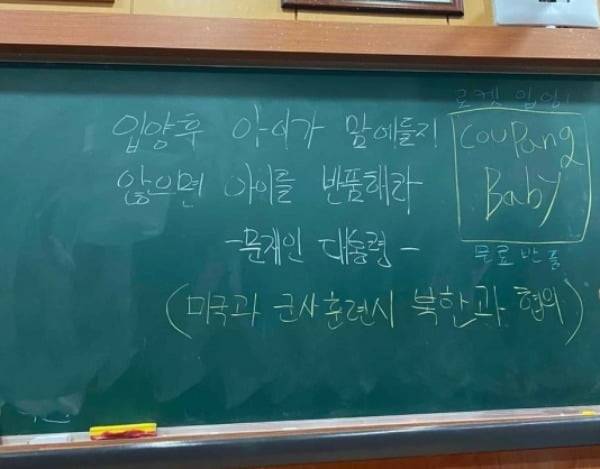 로켓 입양!
입양후 아이가 맘에들지
않으면 아이를 반품해라
-문재인 대통령-
coupang
Baby
무료반품
(미국과 군사훈련시 북한과 협의)